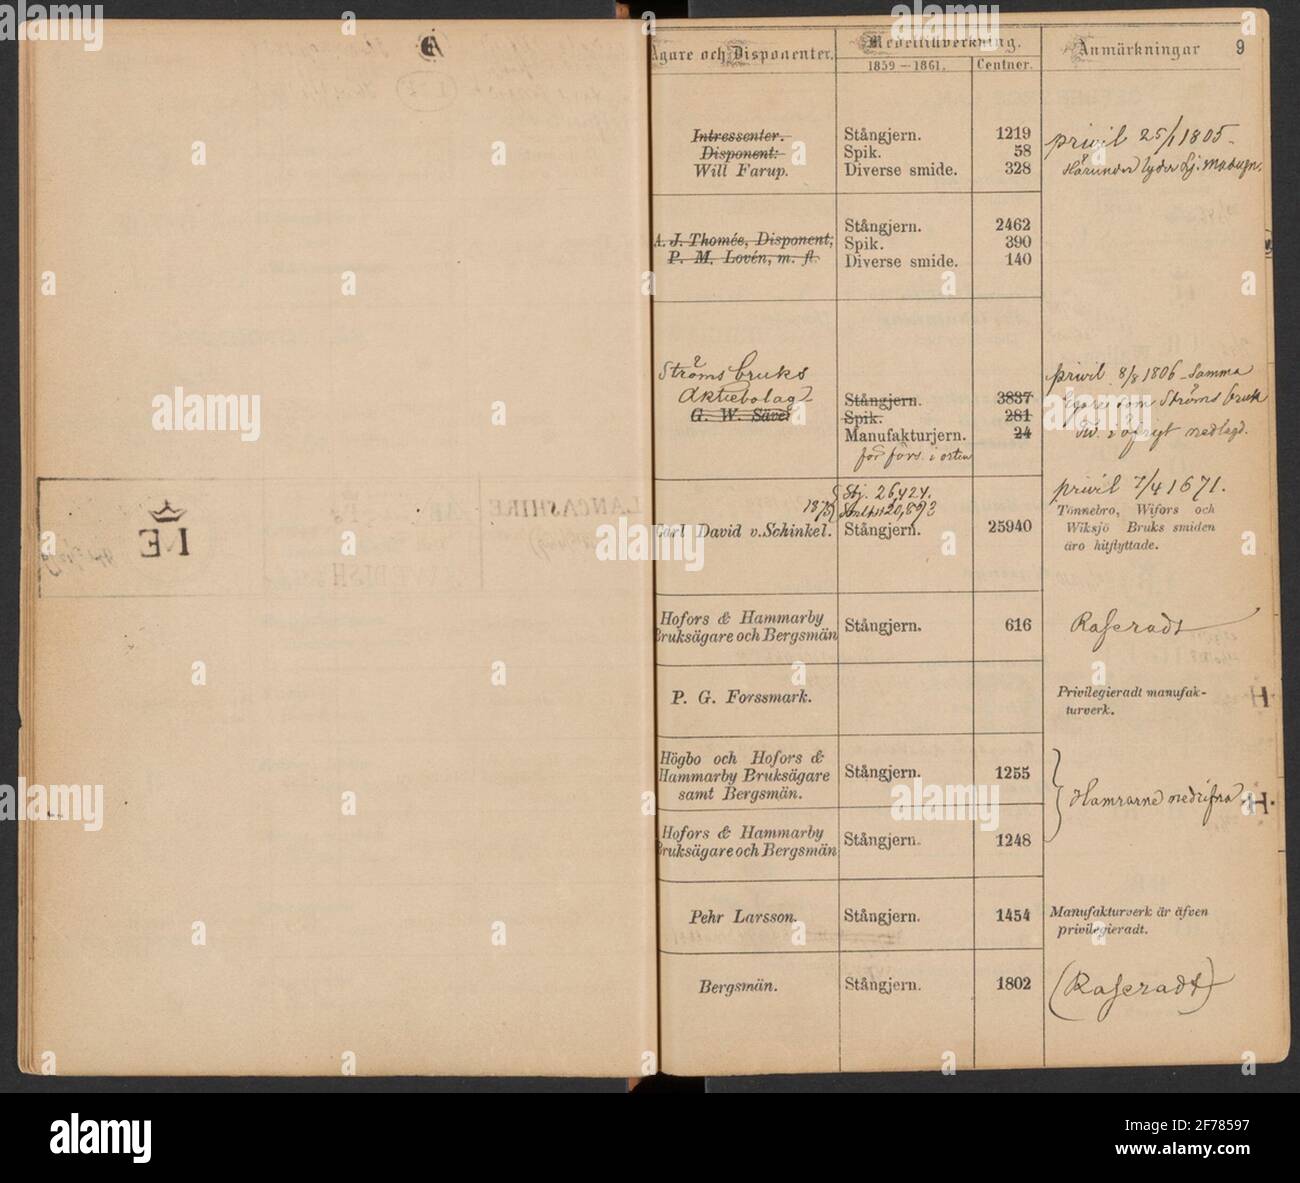 Ägare och Disponenter.
Medeltillverkning.
1859—1861.
Centner.
Anmärkningar
9
Intressenter.
Disponent:
Will Farup.
Stångjern.
1219
Spik.
58
Diverse smide.
328
privil 25/1 1805
Härunder lyder
A. J. Thomée, Disponent,
P. M. Lovén, m. fl.
Stångjern.
2462
Spik.
390
Diverse smide.
140
Ströms bruks
Aktiebolag
G. W. Säve.
Stångjern.
3837
Spik.
281
Manufakturjern.
24
för förs. i orten
privil 8/8 1806 Samma
Egare som Ströms bruk
nedlagd.
1873
Stj. 26,424.
20,893
Carl David v. Schinkel.
Stångjern.
25940
privil 7/4 1671.
Tönnebro, Wifors och
Wiksjö Bruks smiden
äro hitflyttade.
Hofors & Hammarby
Bruksägare och Bergsmän
Stångjern.
616
Raseradt
P. G. Forssmark.
Privilegieradt manufak-
turverk.
H
Högbo och Hofors &
Hammarby Bruksägare
samt Bergsmän.
Stångjern.
1255
Hamrarne nedrifna
H
Hofors & Hammarby
Bruksägare och Bergsmän
Stångjern.
1248
Pehr Larsson.
Stångjern.
1454
Manufakturverk är äfven
privilegieradt.
Bergsmän.
Stångjern.
1802
(Raseradt)
LANCASHIRE
NE
SWEDISH
alamy
Image ID: 2F78597
www.alamy.com